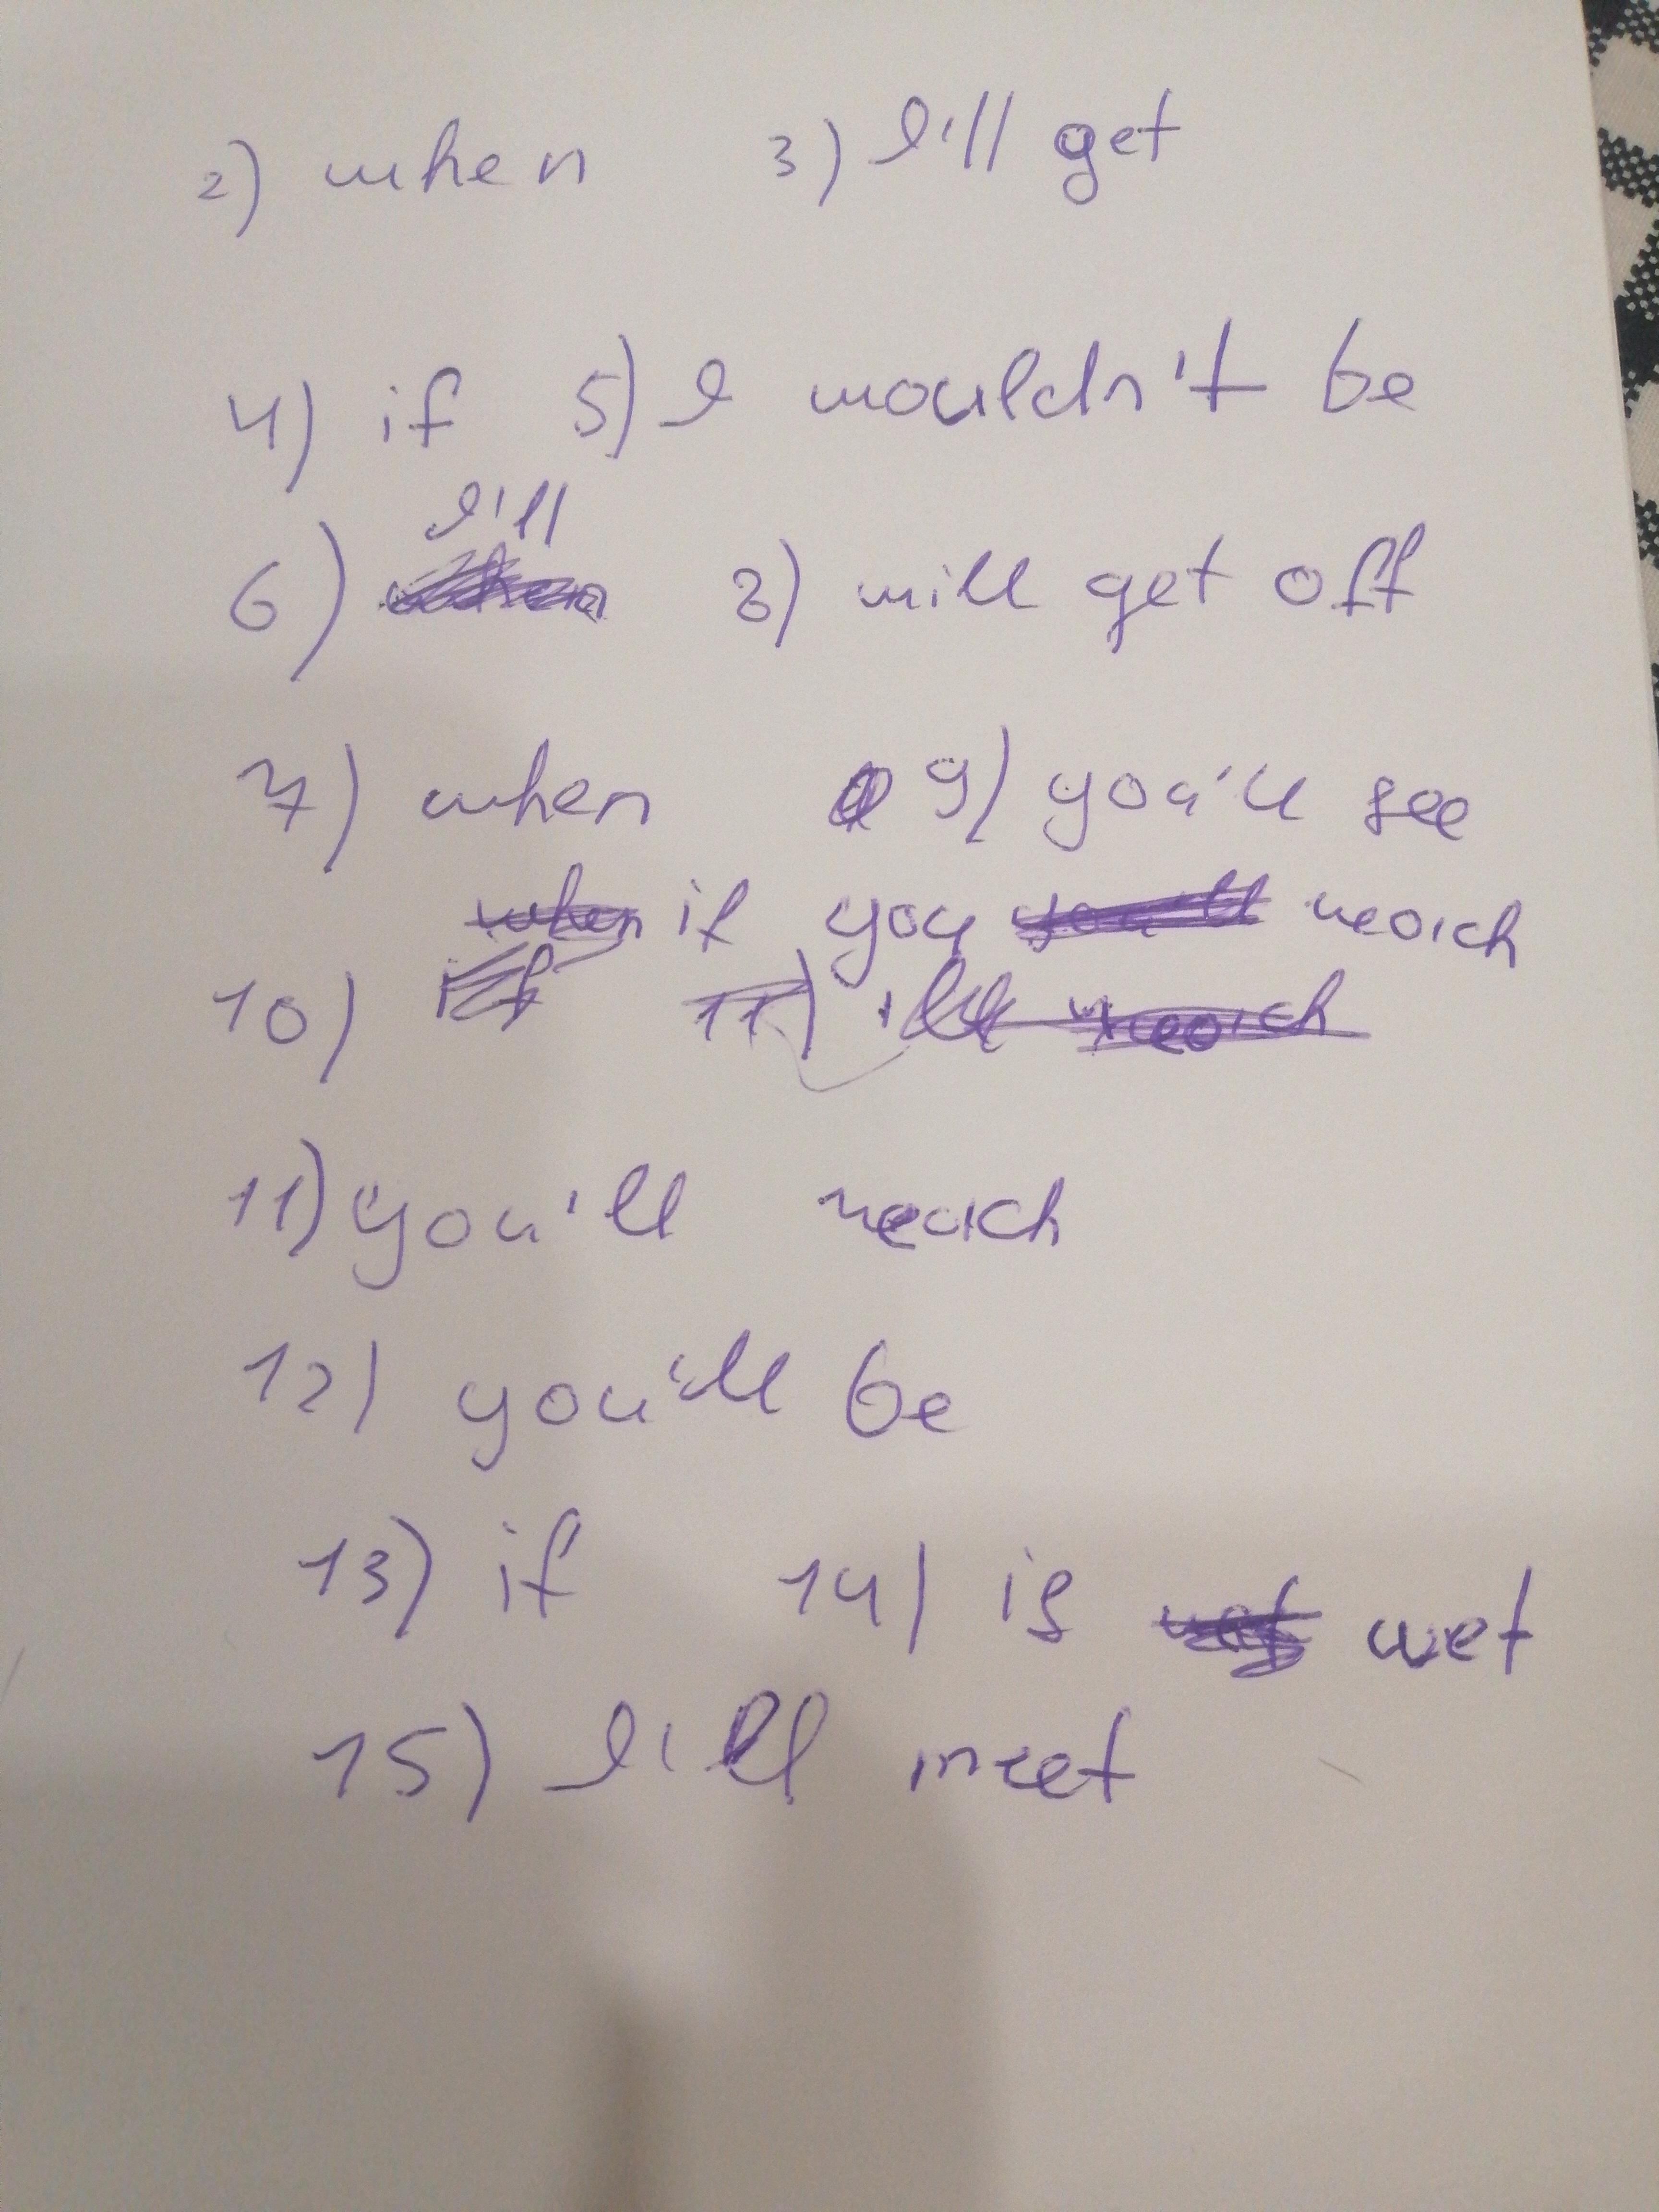 2) when 3) I'll get
4) if 5) I wouldn't be
I'll
6) 8) will get off
7) when 9) you'll see
when if you you'll reach
10) if 11) reach
11) you'll reach
12) you'll be
13) if 14) is wet
15) I'll meet